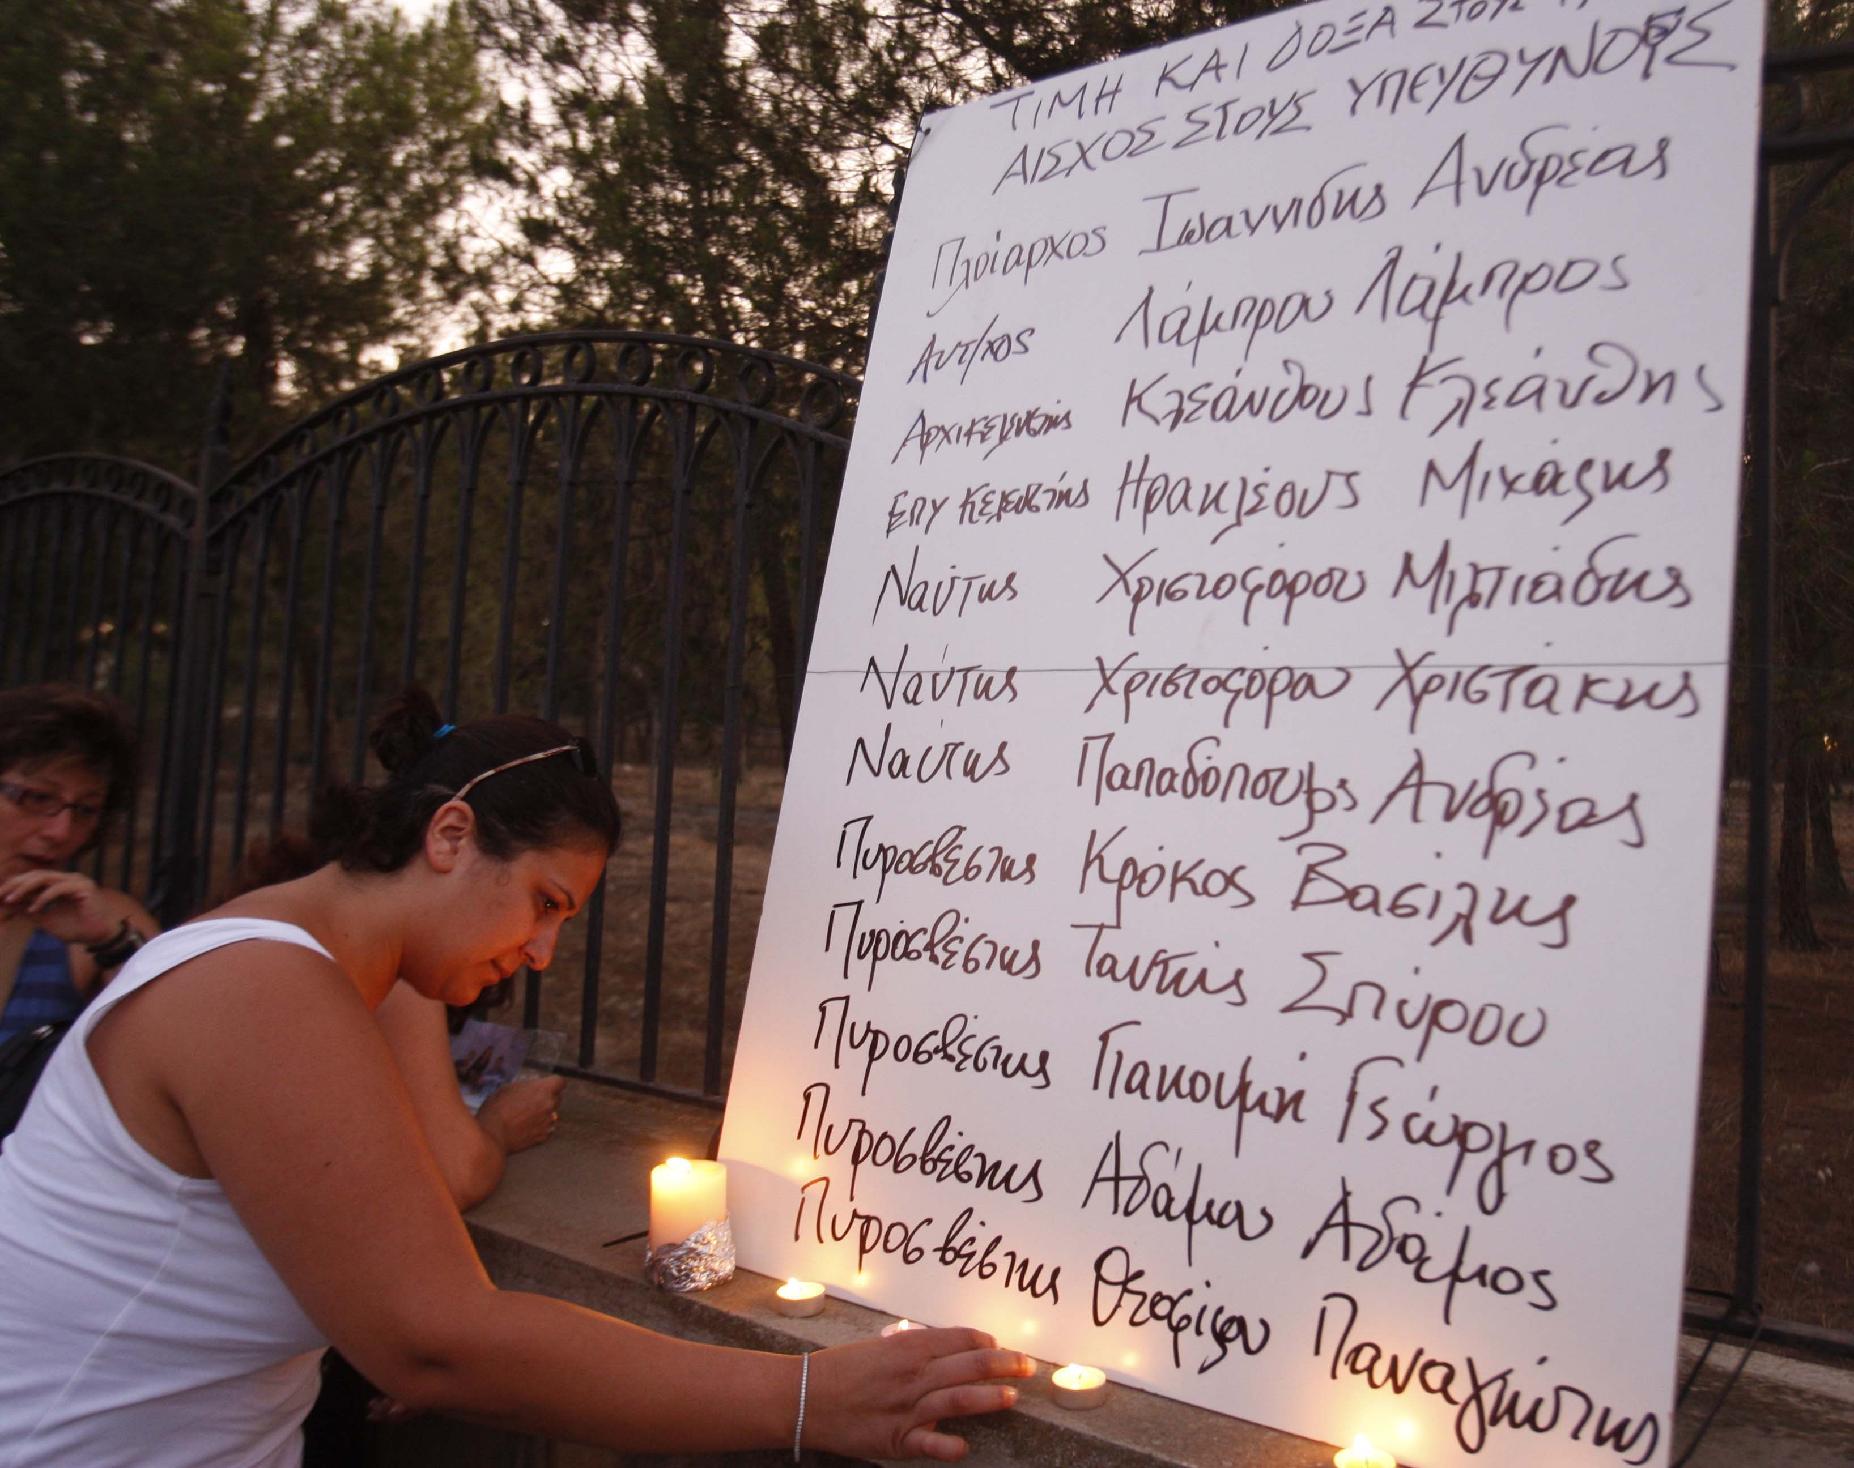 ΤΙΜΗ ΚΑΙ ΔΟΞΑ ΣΤΟΥΣ
ΑΙΣΧΟΣ ΣΤΟΥΣ ΥΠΕΥΘΥΝΟΥΣ
Πλοίαρχος Ιωαννιδης Ανδρέας
Αντ/χος Λάμπρου Λάμπρος
Αρχικελευστής Κλεάνθους Κλεάνθης
ΕΠΥ Κελευστής Ηρακλέους Μιχάλης
Ναύτης Χριστοφόρου Μιλτιάδης
Ναύτης Χριστοφόρου Χριστάκης
Ναύτης Παπαδόπουλος Ανδρέας
Πυροσβέστης Κρόκος Βασίλης
Πυροσβέστης Ταντής Σπύρου
Πυροσβέστης Γιακουμή Γεώργιος
Πυροσβέστης Αδάμου Αδάμος
Πυροσβέστης Θεοφίλου Παναγιώτης